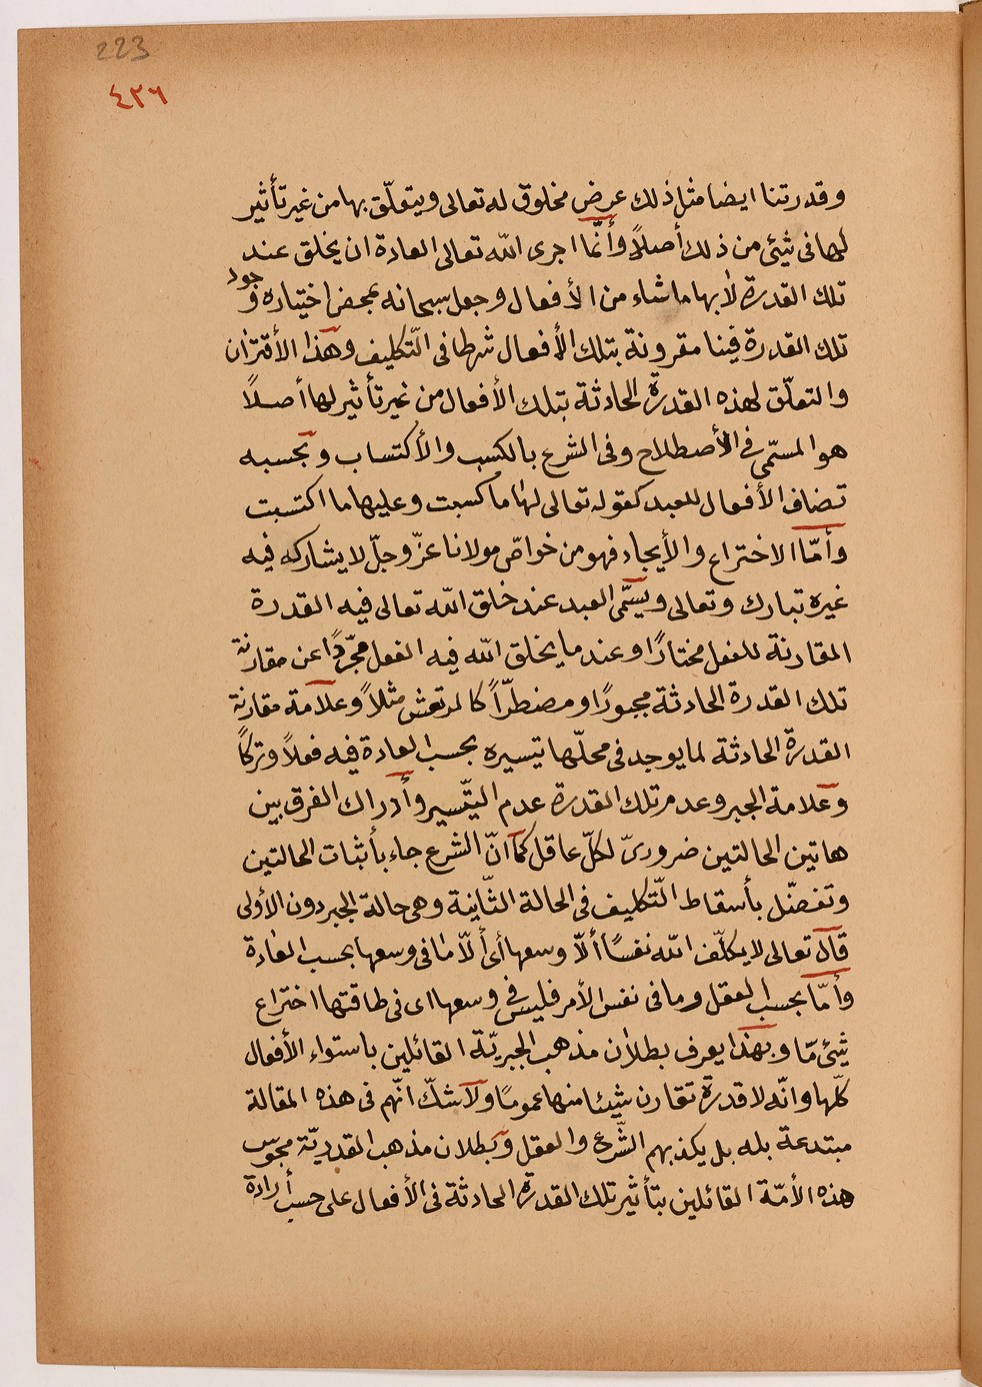 223
٤٢٦
وقدرتنا ايضا مثل ذلك عرض مخلوق له تعالى ويتعلّق بها من غير تأثير
لها فى شيئ من ذلك أصلاً وأنّما اجرى اللّه تعالى العادة ان يخلق عند
تلك القدرة لا بها ما شاء من الأفعال وجعل سبحانه بمحض اختياره وجود
تلك القدرة فينا مقرونة بتلك الأفعال شرطا فى التّكليف وهذا الأقتران
والتعلّق لهذه القدرة الحادثة بتلك الأفعال من غير تأثير لها أصلاً
هو المسمّى فى الأصطلاح وفى الشرع بالكسب والأكتساب وبحسبه
تضاف الأفعال للعبد كقوله تعالى لها ما كسبت وعليها ما اكتسبت
وأمّا الاختراع والأيجاد فهو من خواصّ مولانا عزّ وجلّ لا يشاركه فيه
غيره تبارك وتعالى ويسمّى العبد عند خلق اللّه تعالى فيه القدرة
المقارنة للفعل مختارًا وعند ما يخلق اللّه فيه الفعل مجّردًا عن مقارنة
تلك القدرة الحادثة مجبورًا ومضطرّاً كالمرتعش مثلاً وعلامة مقارنة
القدرة الحادثة لما يوجد فى محلّها تيسيره بحسب العادة فيه فعلاً وتركاً
وعلامة الجبر وعدم تلك القدرة عدم التّيسير وأدراك الفرق بين
هاتين الحالتين ضرورىّ لكلّ عاقل كما انّ الشرع جاء بأثبات الحالتين
وتفضّل بأسقاط التّكليف فى الحالة الثّانية وهى حالة الجبر دون الأولى
قال تعالى لا يكلّف اللّه نفسًا ألاّ وسعها أى ألاّ ما فى وسعها بحسب العادة
وأمّا بحسب العقل وما فى نفس الأمر فليس فى وسعها اى فى طاقتها اختراع
شيئ مّا وبهذا يعرف بطلان مذهب الجبريّة القائلين باستواء الأفعال
كلّها وانّه لا قدرة تقارن شيئا منها عمومًا ولا شكّ انّهم فى هذه المقالة
مبتدعة بله بل يكذبهم الشّرع والعقل وبطلان مذهب القدريّة مجوس
هذه الأمّة القائلين بتأثير تلك القدرة الحادثة فى الأفعال على حسب أرادة